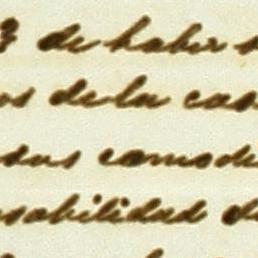 de haber
os de la cas
sus comode
nsabilidad de